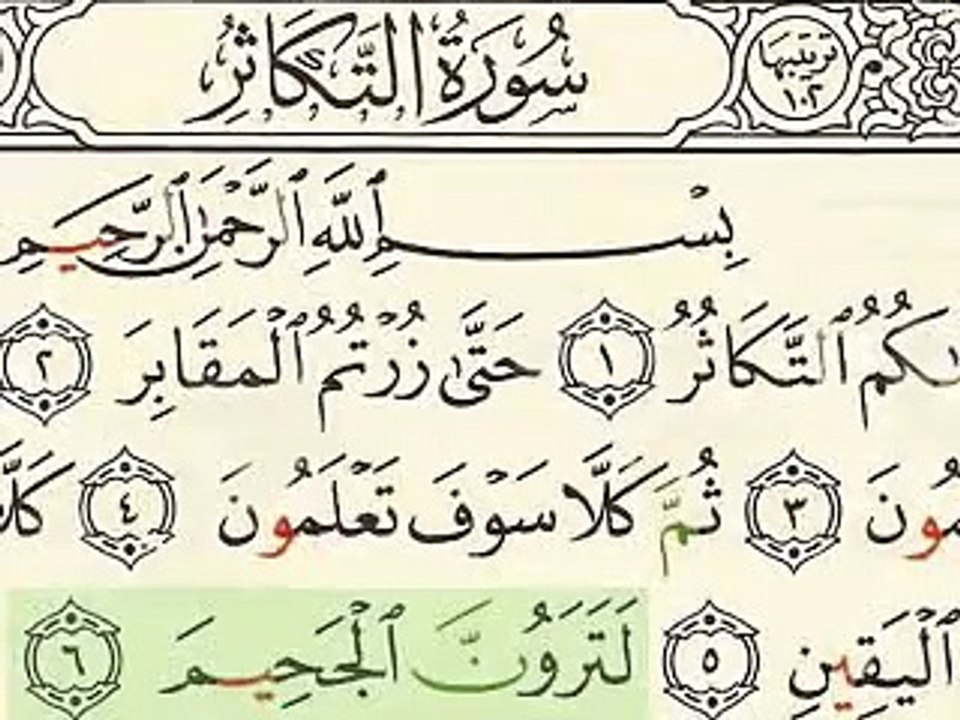 سُورَةُ التَّكَاثُرِ
ترتيبها ١٠٢
بِسْمِ ٱللَّهِ ٱلرَّحْمَٰنِ ٱلرَّحِيمِ
ٱلتَّكَاثُرُ ١ حَتَّىٰ زُرْتُمُ ٱلْمَقَابِرَ ٢
٣ ثُمَّ كَلَّا سَوْفَ تَعْلَمُونَ ٤
ٱلْيَقِينِ ٥ لَتَرَوُنَّ ٱلْجَحِيمَ ٦